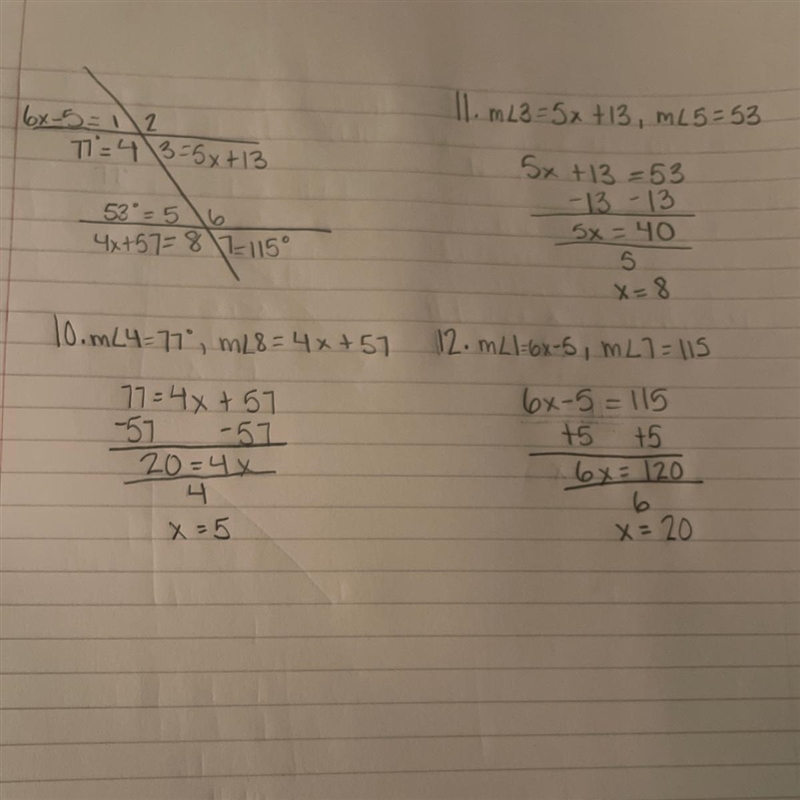 6x-5=1 2
77°=4 3=5x+13
53°=5 6
4x+57=8 7=115°
11. m∠3=5x+13, m∠5=53
5x+13=53
-13 -13
5x=40
5
x=8
10. m∠4=77°, m∠8=4x+57
77=4x+57
-57 -57
20=4x
4
x=5
12. m∠1=6x-5, m∠7=115
6x-5=115
+5 +5
6x=120
6
x=20